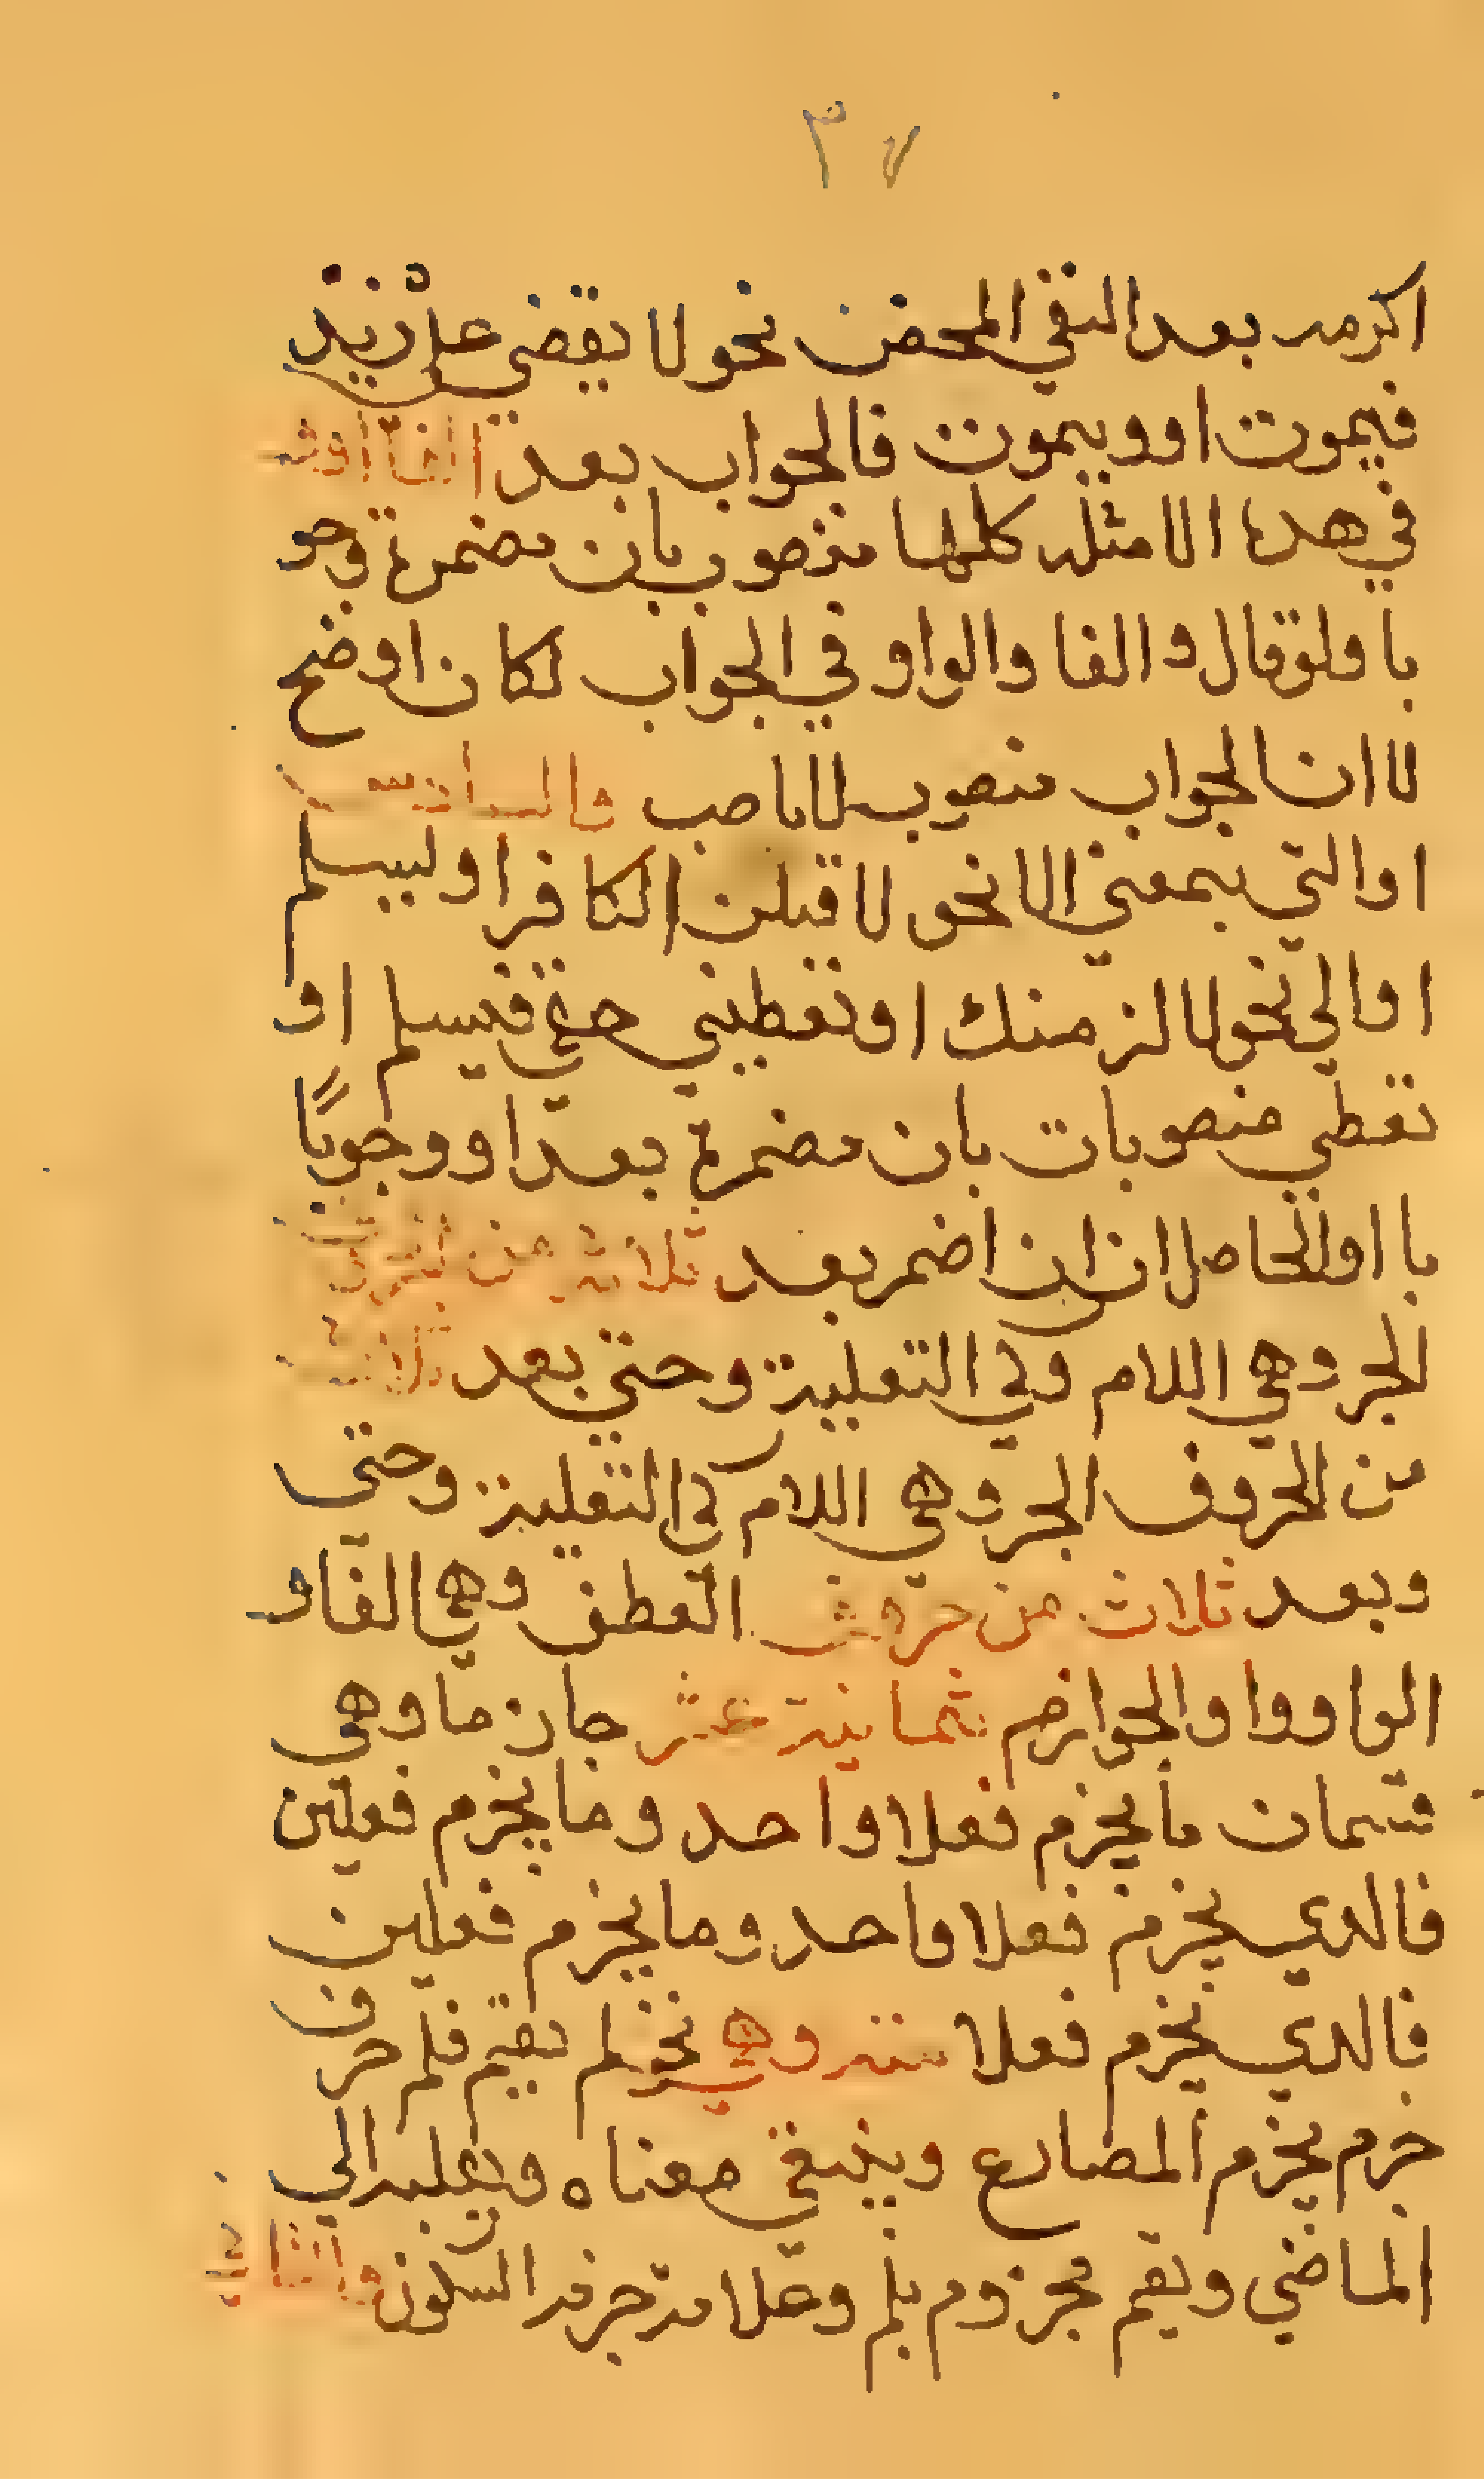 ٣٧
اكرمه بعد النفي المحض نحو لا يقضي على زيد
فيموت او ويموت فالجواب بعد الفا او
في هده الامثله كلها منصوب بان مضمرة وجو
با ولو قال والفا والواو في الجواب لكان اوضح
لاان الجواب منصوب لاناصب
اوالتي بمعني الا نحو لاقتلن الكافر او ليسلم
اوالي نحو لالزمنك او تعطيني حقي فيسلم او
تعطي منصوبات بان مضمرة بعد او وجوبًا
با او الحاصل ان ان اضمر بعد ثلاثة من
الجر وهي اللام وكي التعليية وحتي بعد ثلاثة
من الحروف الجر وهي اللام كي التعليية وحتي
وبعد ثلاث من حروف العطف وهي الفا و
الواو واو والجوازم ثمانية عشر جازما وهي
قسمان ما يجزم فعلا واحد وما يجزم فعلين
فالدي يجزم فعلا واحد وما يجزم فعلين
فالدي يجزم فعلا سته وهي نحو لم يقيم فلم حرف
جزم يجزم المضارع وينفي معناه ويقلبه الي
الماضي ويقم مجزوم بلم وعلامة جزمه السكون والثاني